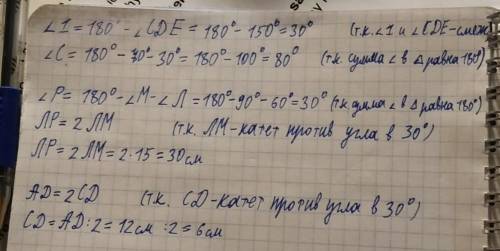 ∠1=180° - ∠CDE = 180° - 150° = 30° (т.к. ∠1 и ∠CDE - смеж
∠C = 180° - 70° - 30° = 180° - 100° = 80° (т.к. сумма ∠ в △ равна 180°)
∠P = 180° - ∠M - ∠Л = 180° - 90° - 60° = 30° (т.к. сумма ∠ в △ равна 180°)
ЛР = 2 ЛМ (т.к. ЛМ - катет против угла в 30°)
ЛР = 2 ЛМ = 2 · 15 = 30 см
AD = 2CD (т.к. CD - катет против угла в 30°)
CD = AD : 2 = 12 см : 2 = 6 см